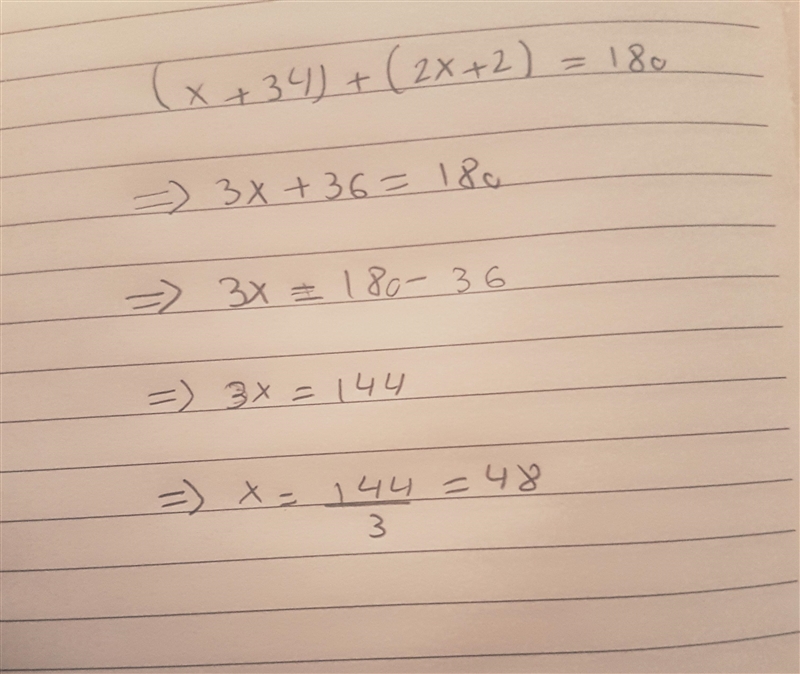 (x + 34) + (2x + 2) = 180
⇒ 3x + 36 = 180
⇒ 3x = 180 - 36
⇒ 3x = 144
⇒ x = 144/3 = 48